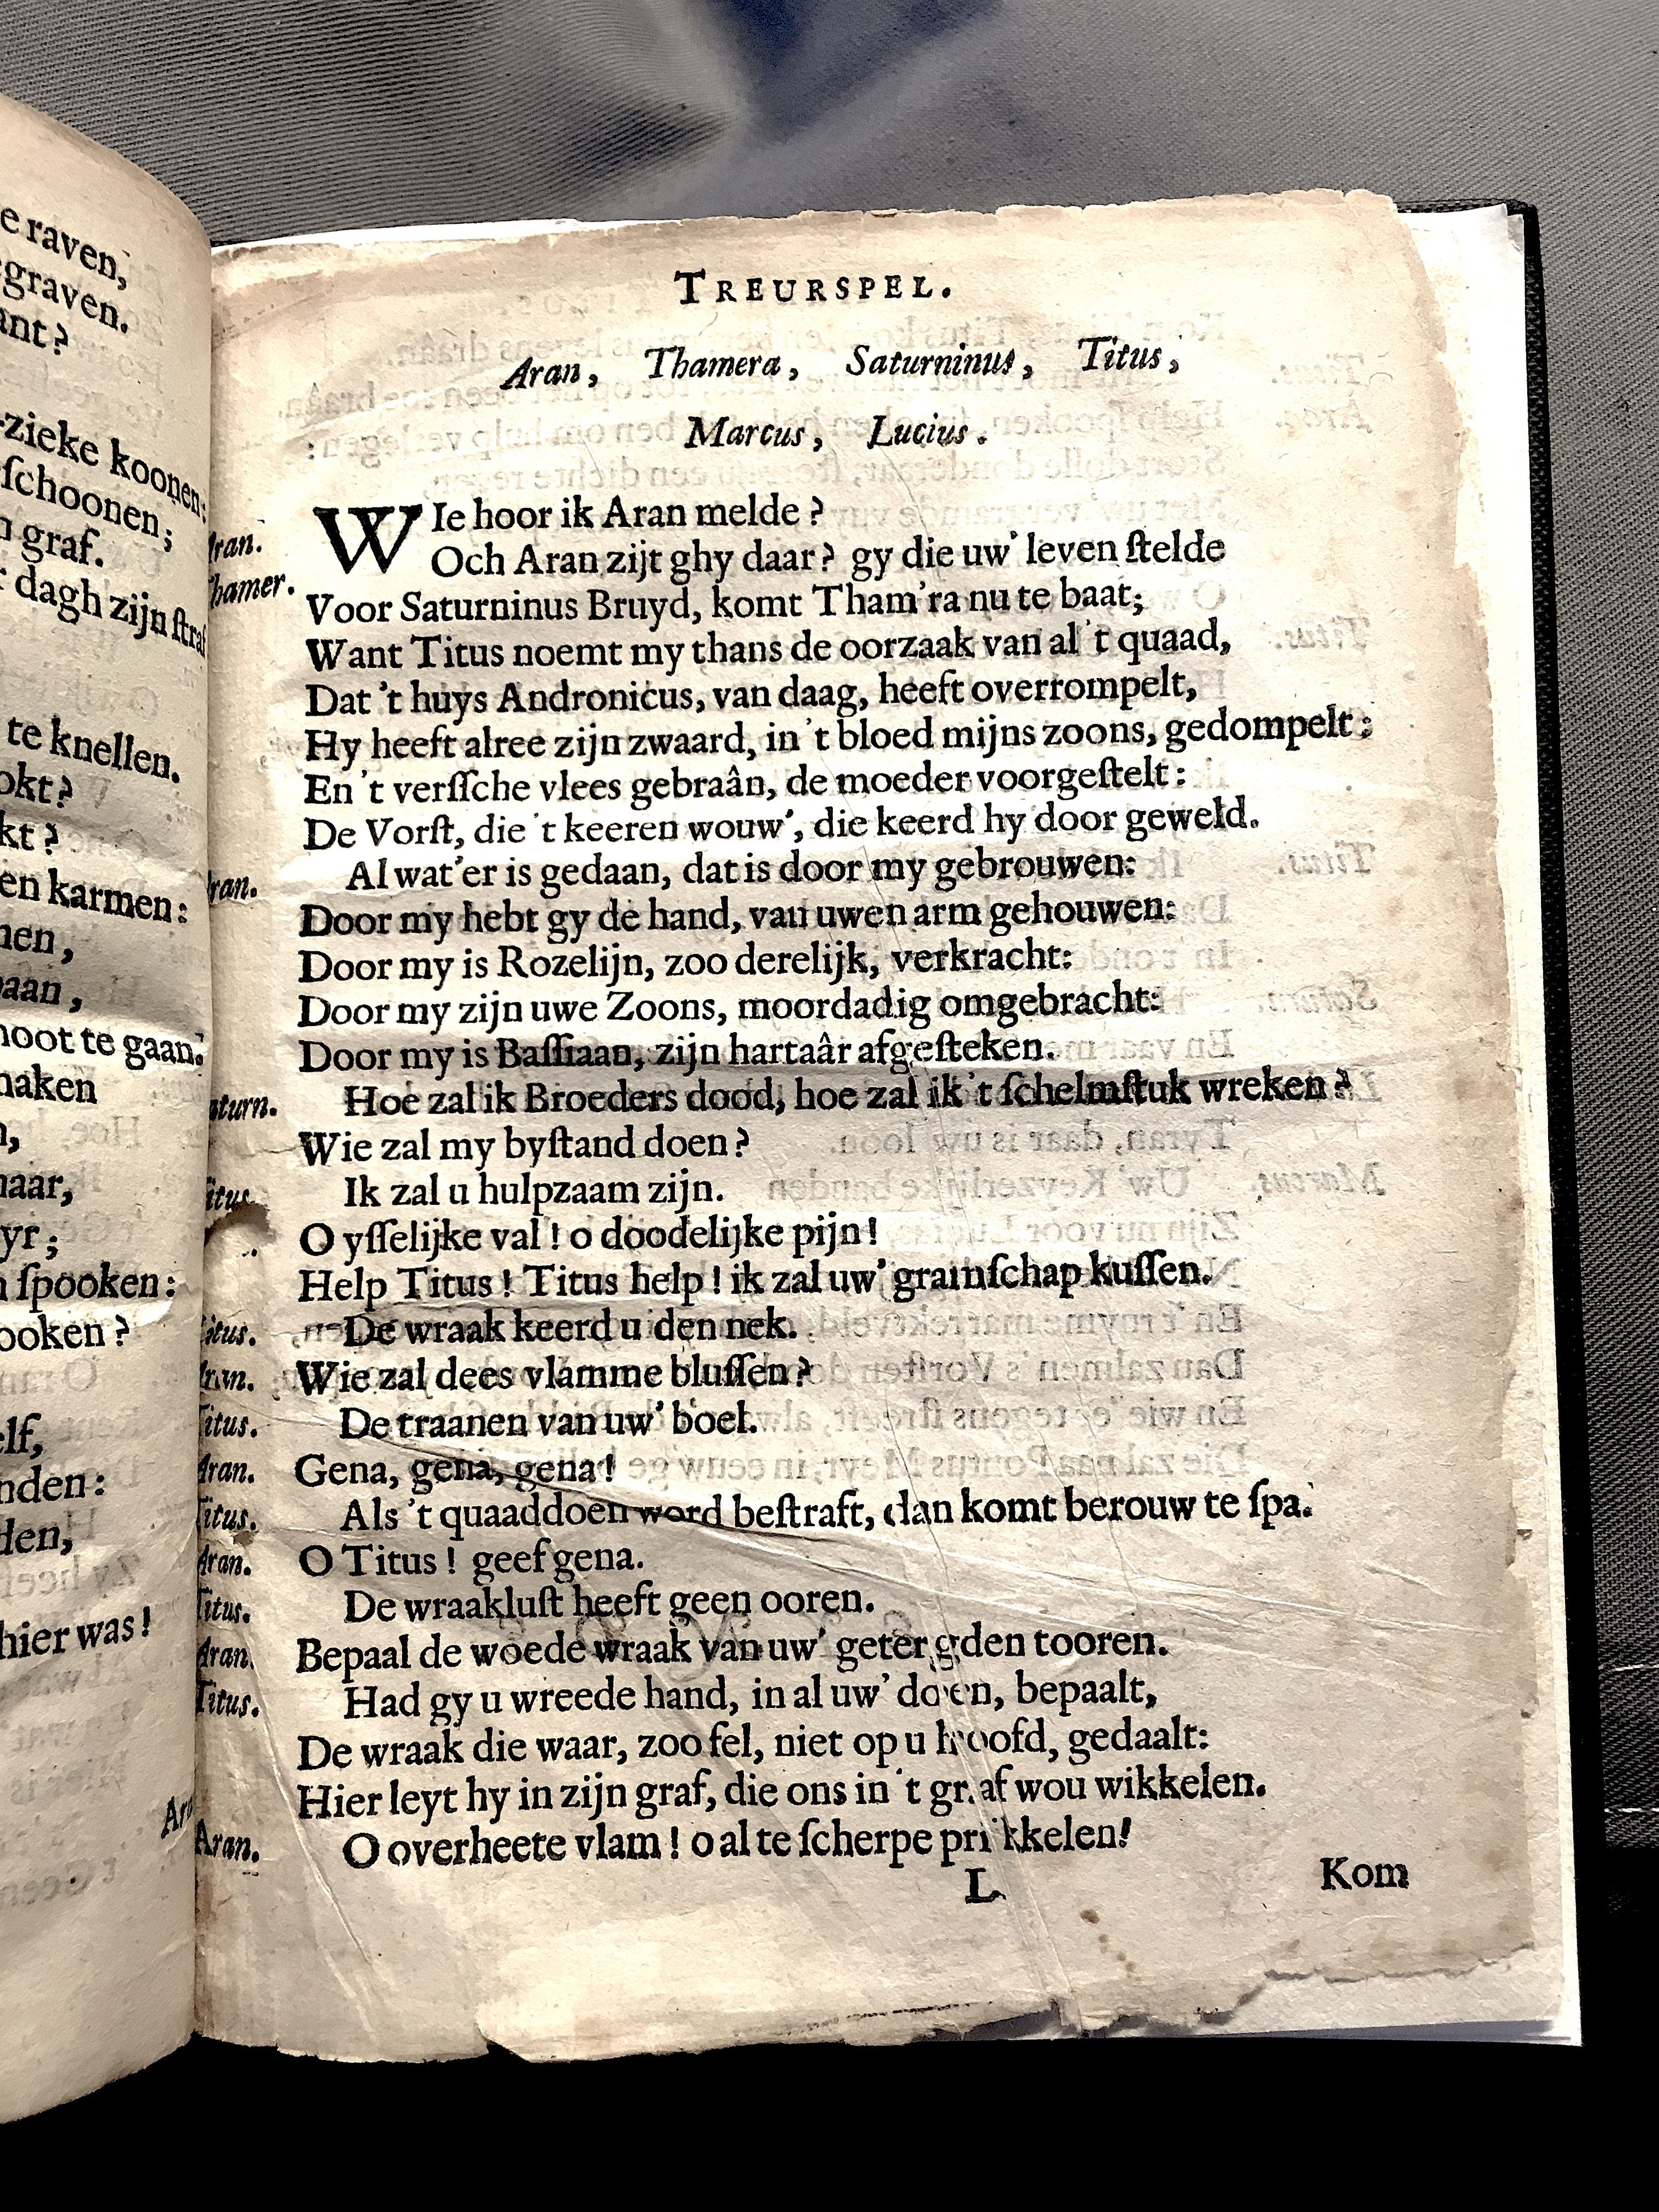 e raven,
graven.
ant?
-zieke koonen:
ſchoonen;
graf.
dagh zijn ſtraf
te knellen.
okt?
kt?
en karmen:
nen,
aan,
noot te gaan.
naken
aar,
yr;
ſpooken:
ooken?
elf,
nden:
den,
hier was!
TREURSPEL.
Aran, Thamera, Saturninus, Titus,
Marcus, Lucius.
Aran. WIe hoor ik Aran melde?
Thamer. Och Aran zijt ghy daar? gy die uw' leven ſtelde
Voor Saturninus Bruyd, komt Tham'ra nu te baat;
Want Titus noemt my thans de oorzaak van al 't quaad,
Dat 't huys Andronicus, van daag, heeft overrompelt,
Hy heeft alree zijn zwaard, in 't bloed mijns zoons, gedompelt:
En 't verſſche vlees gebraân, de moeder voorgeſtelt:
De Vorſt, die 't keeren wouw', die keerd hy door geweld.
Aran. Al wat'er is gedaan, dat is door my gebrouwen:
Door my hebt gy de hand, van uwen arm gehouwen:
Door my is Rozelijn, zoo derelijk, verkracht:
Door my zijn uwe Zoons, moordadig omgebracht:
Door my is Baſſiaan, zijn hartaâr afgeſteken.
Saturn. Hoe zal ik Broeders dood, hoe zal ik 't ſchelmſtuk wreken?
Wie zal my byſtand doen?
Titus. Ik zal u hulpzaam zijn.
O yſſelijke val! o doodelijke pijn!
Help Titus! Titus help! ik zal uw' gramſchap kuſſen.
Titus. De wraak keerd u den nek.
Aran. Wie zal dees vlamme bluſſen?
Titus. De traanen van uw' boel.
Aran. Gena, gena, gena!
Titus. Als 't quaaddoen word beſtraft, dan komt berouw te ſpa.
Aran. O Titus! geef gena.
Titus. De wraakluſt heeft geen ooren.
Aran. Bepaal de woede wraak van uw' getergden tooren.
Titus. Had gy u wreede hand, in al uw' doen, bepaalt,
De wraak die waar, zoo fel, niet op u hoofd, gedaalt:
Hier leyt hy in zijn graf, die ons in 't graf wou wikkelen.
Aran. O overheete vlam! o al te ſcherpe prikkelen!
L Kom